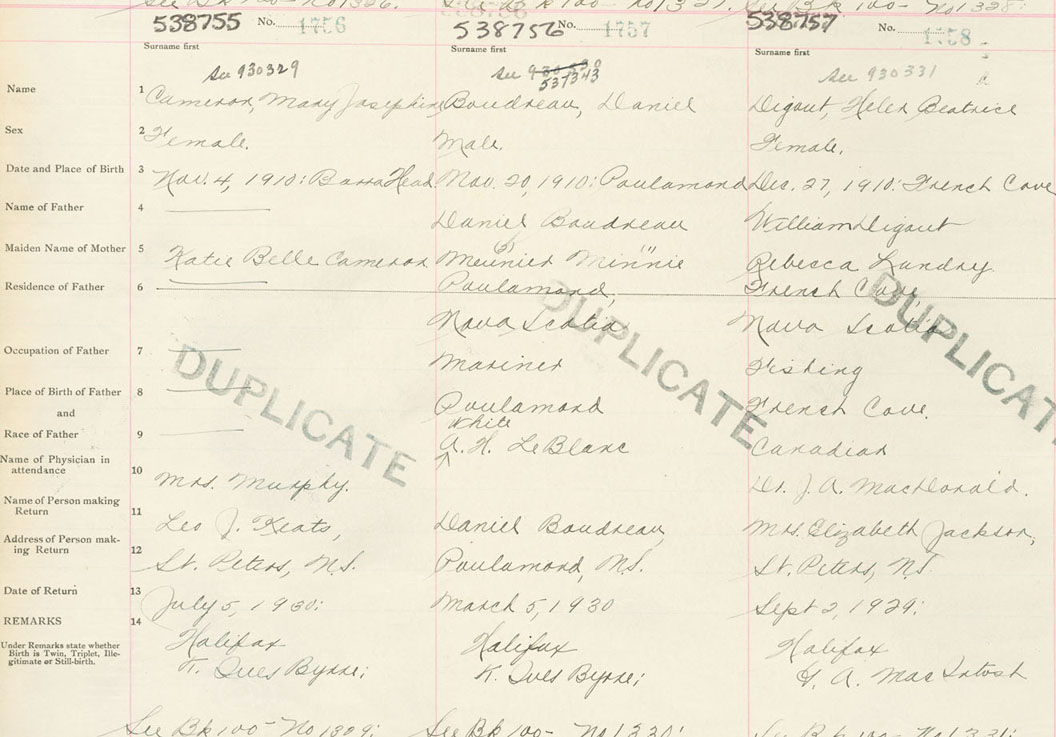 See Bk 100- No 1326. See Bk 100- No 1327. See Bk 100- No 1328:
538755 No. 1756 538756 No. 1757 538757 No. 1758
Surname first Surname first Surname first
See 930329 See 930330 See 930331
537343
Name 1 Cameron, Mary Josephine Boudreau, Daniel Digout, Helen Beatrice
Sex 2 Female. Male. Female.
Date and Place of Birth 3 Nov. 4, 1910: Barra Head. Nov. 20, 1910: Poulamond Dec. 27, 1910: French Cove
Name of Father 4 Daniel Boudreau William Digout
Maiden Name of Mother 5 Katie Belle Cameron Meunier Minnie Rebecca Landry
Residence of Father 6 Poulamond, French Cove,
Nova Scotia Nova Scotia
Occupation of Father 7 Mariner Fishing
Place of Birth of Father 8 Poulamond French Cove.
and
White
Race of Father 9 A. H. LeBlanc Canadian
Name of Physician in
attendance 10 Mrs. Murphy. Dr. J. A. MacDonald.
Name of Person making
Return 11 Leo J. Keats, Daniel Boudreau, Mrs. Elizabeth Jackson,
Address of Person mak-
ing Return 12 St. Peters, N.S. Poulamond, N.S. St. Peters, N.S
Date of Return 13 July 5, 1930: March 5, 1930 Sept 2, 1929:
REMARKS 14
Halifax Halifax Halifax
Under Remarks state whether
Birth is Twin, Triplet, Ille-
gitimate or Still-birth.
K. Ives Byrne; K. Ives Byrne; G. A. MacIntosh
DUPLICATE DUPLICATE DUPLICAT
See Bk 100- No 1309: See Bk 100- No 1330: See Bk 100- No 1331: